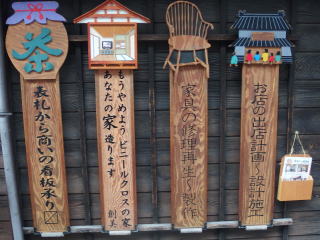 お店の出店計画〜設計施工
家具の修理再生〜製作
もうやめようビニールクロスの家
あなたの家造ります
茶
表札から商いの看板承り〼